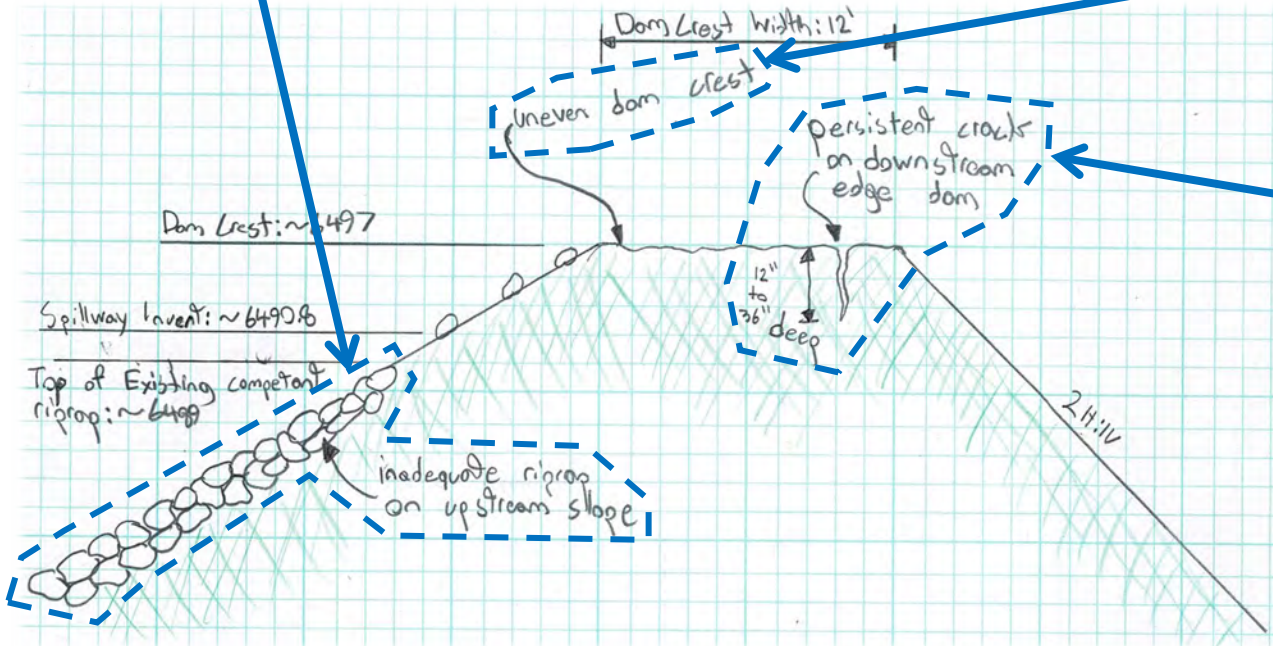 Dam Crest Width: 12'
uneven dam crest
persistent cracks
on downstream
edge dam
Dam Crest: ~6497
12"
to
36"
deep
Spillway Invert: ~6490.8
Top of Existing competant
riprap:
2H:1V
inadequate riprap
on upstream slope